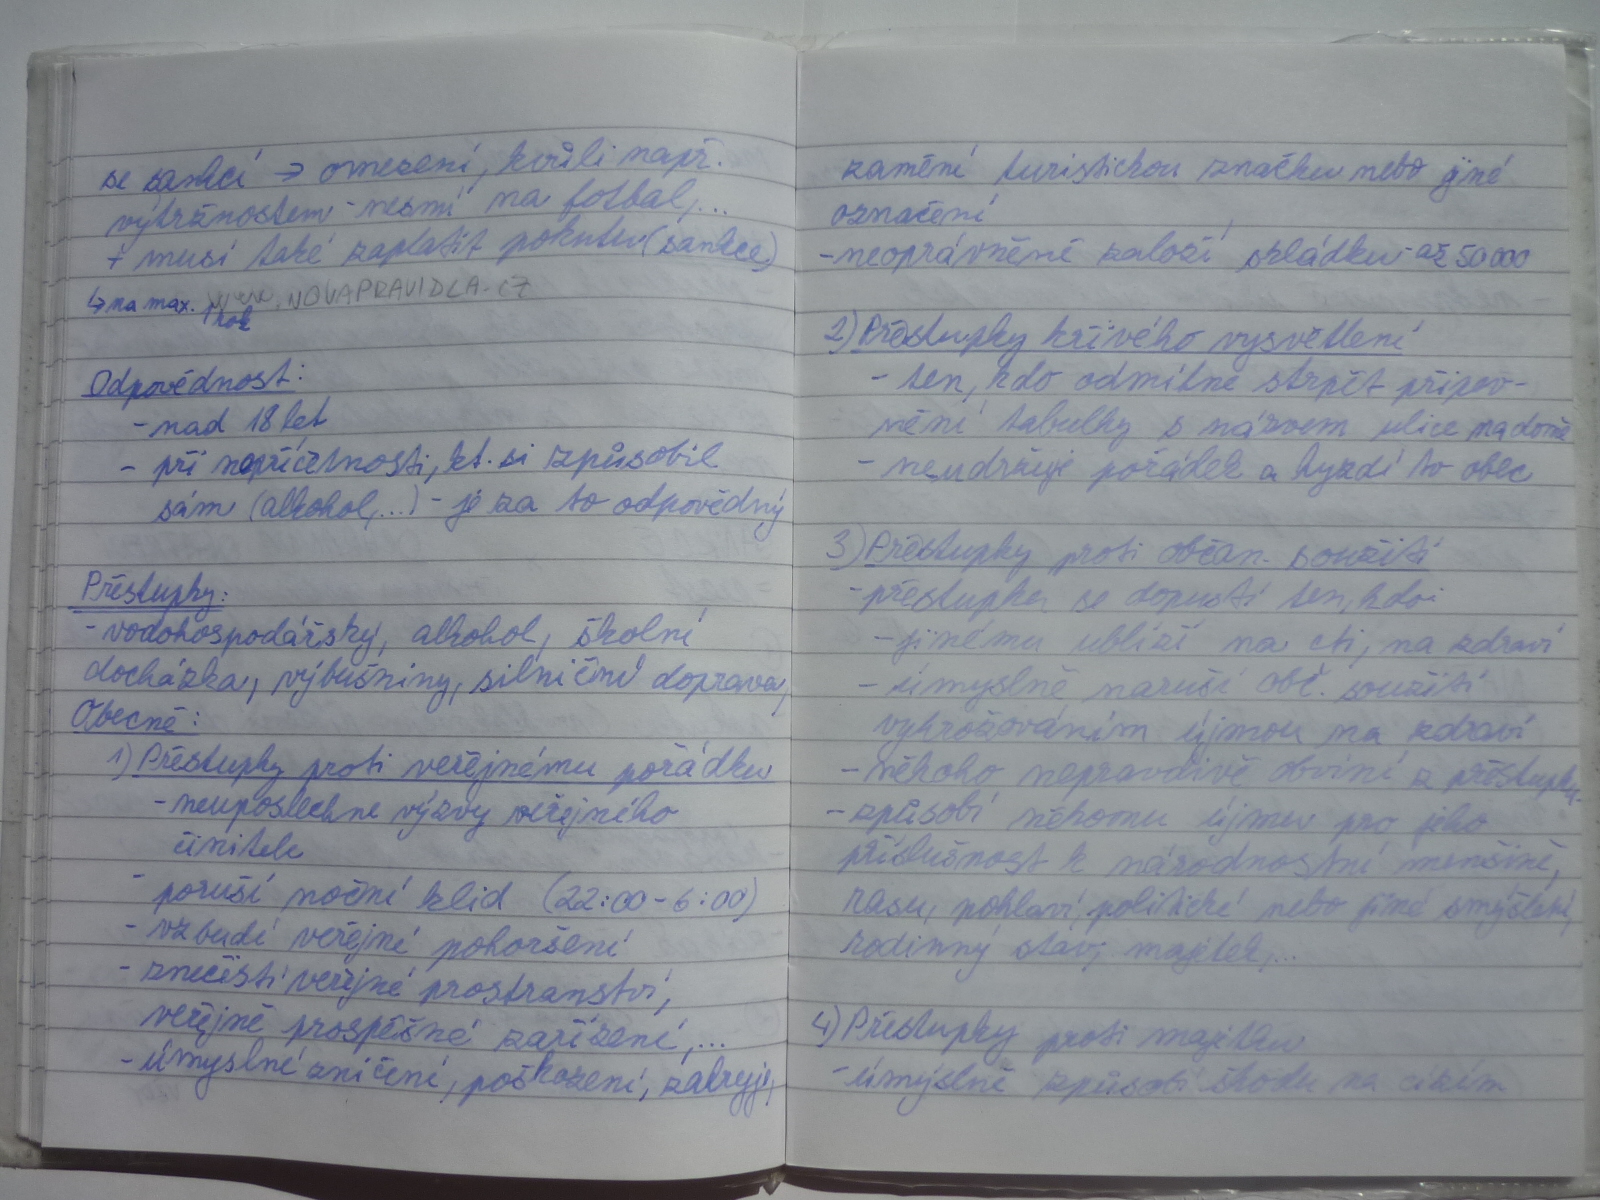 se sankcí → omezení, kvůli např.
výtržnostem - nesmí na fotbal,...
+ musí také zaplatit pokutu (sankce)
↳ na max. 1 rok
www.NOVAPRAVIDLA.CZ
Odpovědnost:
- nad 18 let
- při nepříčetnosti, kt. si způsobil
sám (alkohol,...) - je za to odpovědný
Přestupky:
- vodohospodářský, alkohol, školní
docházka, výbušniny, silniční doprava,
Obecné:
1) Přestupky proti veřejnému pořádku
- neuposlechne výzvy veřejného
činitele
- poruší noční klid (22:00 - 6:00)
- vzbudí veřejné pohoršení
- znečistí veřejné prostranství,
veřejně prospěšné zařízení,...
- úmyslné zničení, poškození, zakryje,
zamění turistickou značku nebo jiné
označení
- neoprávněně založí skládku - až 50 000
2) Přestupky křivého vysvětlení
- ten, kdo odmítne strpět připev-
nění tabulky s názvem ulice na domě
- neudržuje pořádek a hyzdí to obec
3) Přestupky proti občan. soužití
- přestupku se dopustí ten, kdo:
- jinému ublíží na cti, na zdraví
- úmyslně naruší obč. soužití
vyhrožováním újmou na zdraví
- někoho nepravdivě obviní z přestupku
- způsobí někomu újmu pro jeho
příslušnost k národnostní menšině,
rasu, pohlaví, politické nebo jiné smýšlení,
rodinný stav, majetek,...
4) Přestupky proti majetku
- úmyslně způsobí škodu na cizím